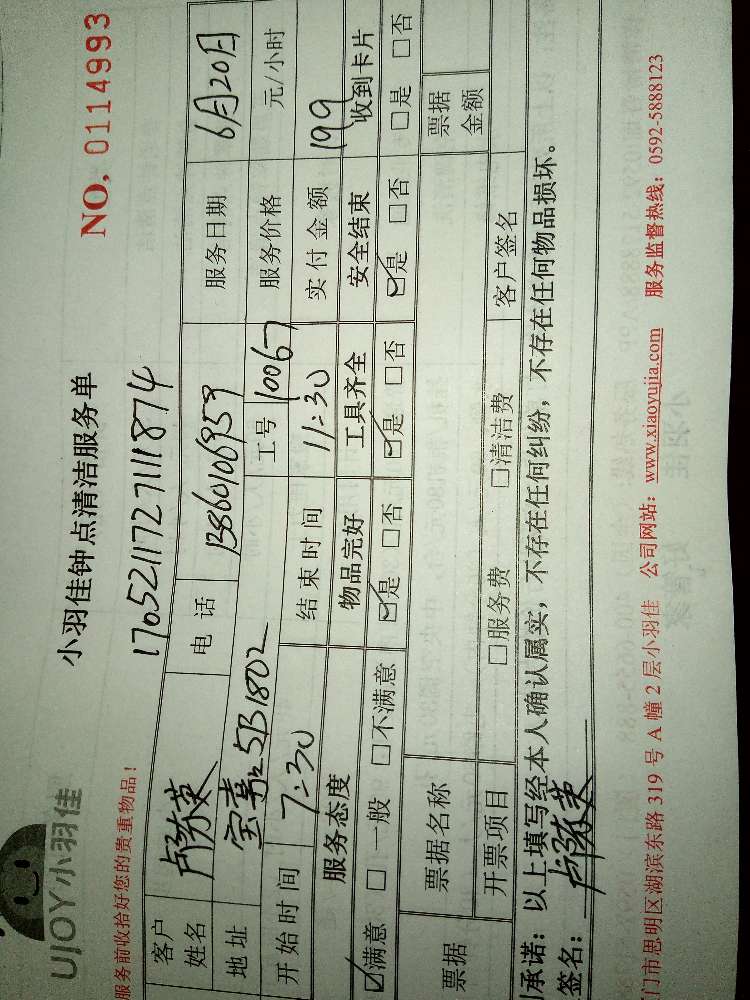 UJOY小羽佳
小羽佳钟点清洁服务单
NO. 0114993
服务前收拾好您的贵重物品！
1705211727111874
客户姓名 卢芬英 电话 13860106959 服务日期 6月20日
地址 宝嘉5B1802 工号 10067 服务价格 元/小时
开始时间 7:30 结束时间 11:30 实付金额 199
服务态度 物品完好 工具齐全 安全结束 收到卡片
☑满意 □一般 □不满意 ☑是 □否 ☑是 □否 ☑是 □否 □是 □否
票据 票据名称 票据金额
开票项目 □服务费 □清洁费 客户签名
承诺：以上填写经本人确认属实，不存在任何纠纷，不存在任何物品损坏。
签名：卢芬英
门市思明区湖滨东路 319 号 A 幢 2 层小羽佳 公司网站：www.xiaoyujia.com 服务监督热线：0592-5888123